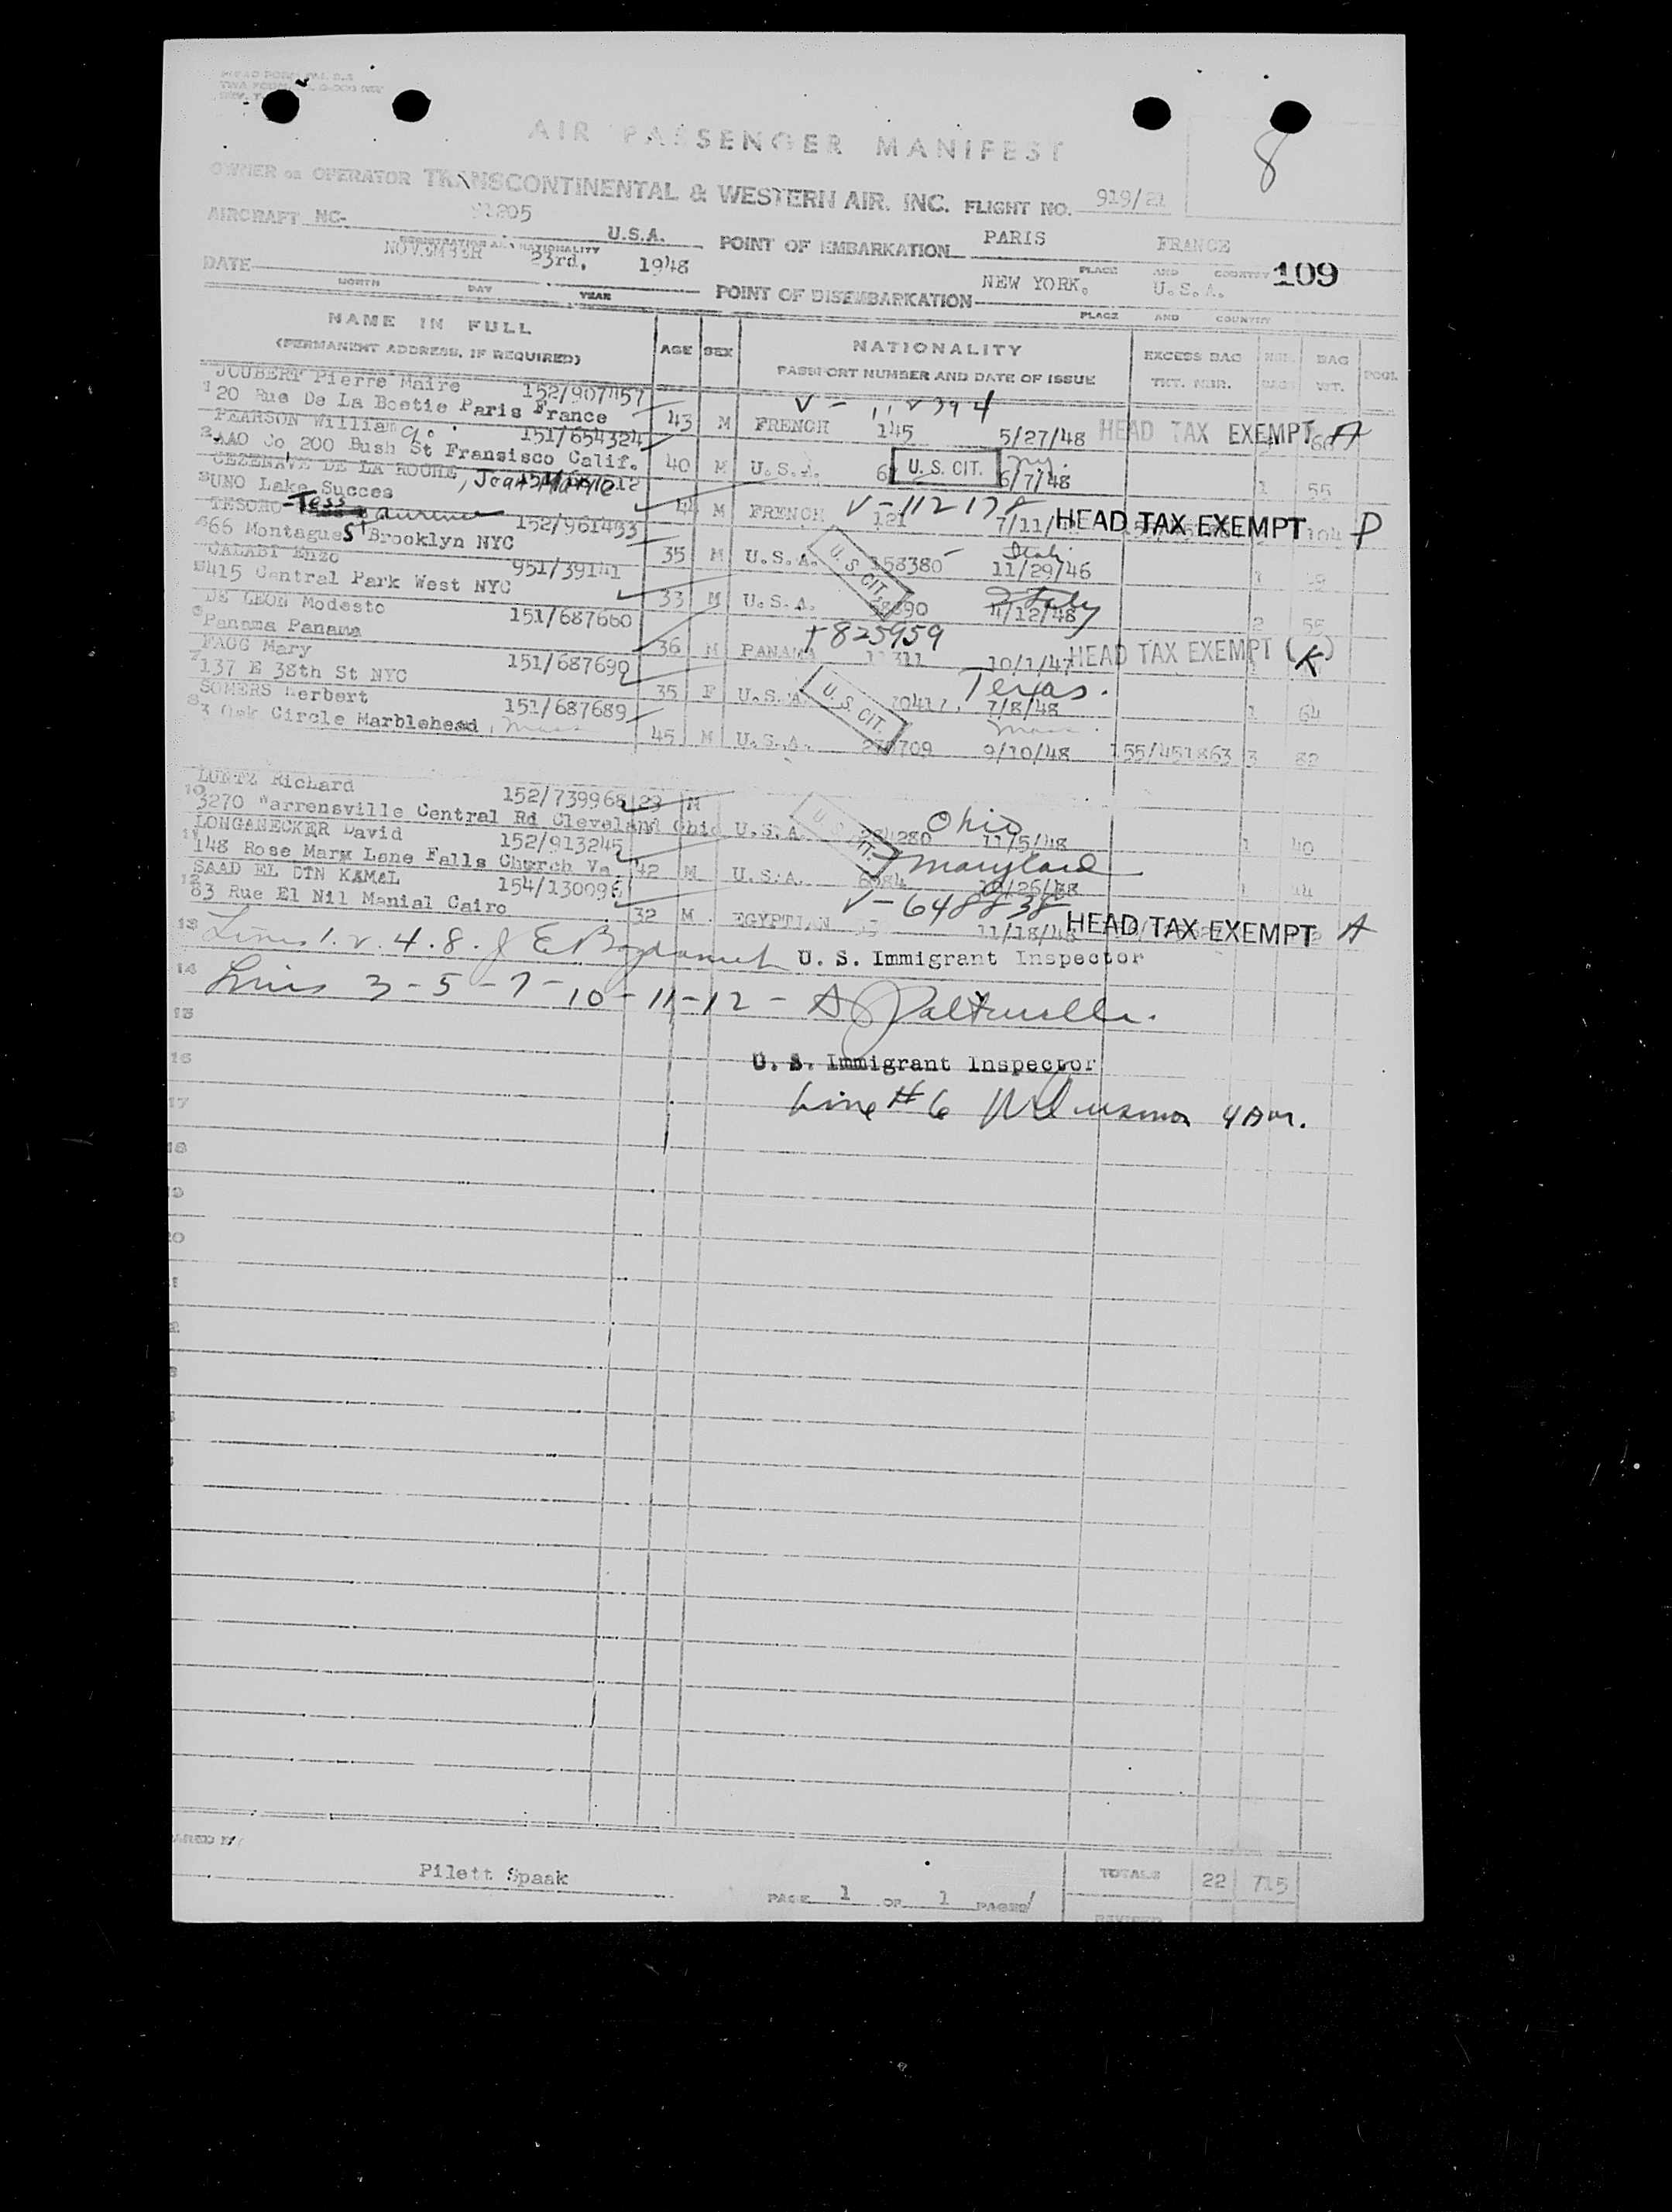 AIR PASSENGER MANIFEST
8
OWNER OR OPERATOR TRANSCONTINENTAL & WESTERN AIR. INC. FLIGHT NO. 919/21
AIRCRAFT NC- 91205 U.S.A. POINT OF EMBARKATION PARIS FRANCE
REGISTRATION AND NATIONALITY PLACE AND COUNTRY 109
DATE NOVEMBER 23rd. 1948 POINT OF DISEMBARKATION NEW YORK. U.S.A.
MONTH DAY YEAR PLACE AND COUNTRY
NAME IN FULL
(PERMANENT ADDRESS, IF REQUIRED) AGE SEX NATIONALITY
PASSPORT NUMBER AND DATE OF ISSUE EXCESS BAG
TKT. NBR. NBR.
BAGS BAG
WT. POOL
JOUBERT Pierre Maire 152/907457
1 20 Rue De La Boetie Paris France 43 M FRENCH 145 5/27/48 HEAD TAX EXEMPT A
PEARSON William 151/654324
2 AAO Co, 200 Bush St Fransisco Calif. 40 M U.S.A. U. S. CIT. 6/7/48 1 55
CEZENAVE DE LA ROCHE, Jean Marie
3 UNO Lake Succes 44 M FRENCH V-112178 121 7/11/ HEAD TAX EXEMPT 104 P
TESORO 152/961433
4 66 Montague St Brooklyn NYC 35 M U.S.A. U. S. CIT. 158380 Italy 11/29/46 1
CALABI Enzo 951/39141
5 415 Central Park West NYC 33 M U.S.A. Italy 4/12/48 2 55
DE LEON Modesto 151/687660
6 Panama Panama 36 M PANAMA +825959 11311 10/1/47 HEAD TAX EXEMPT (K)
FAGG Mary 151/687690
7 137 E 38th St NYC 35 F U.S.A. U. S. CIT. Texas. 7/8/48 1 64
SOMERS Herbert 151/687689
8 3 Oak Circle Marblehead, Mass 45 M U.S.A. Mass. 9/10/48 155/451863 3 82
LUNTZ Richard 152/739968 29 M
10 3270 Warrensville Central Rd Cleveland Ohio U.S.A. Ohio 11/5/48 1 40
LONGANECKER David 152/913245
11 148 Rose Marx Lane Falls Church Va. 42 M U.S.A. 6084 Maryland 1 44
SAAD EL DTN KAMAL 154/130096
12 83 Rue El Nil Manial Cairo 32 M EGYPTIAN V-648838 11/18/48 HEAD TAX EXEMPT A
13 Lines 1. 2. 4. 8. U. S. Immigrant Inspector
14 Lines 3-5-7-10-11-12-
15
16 U. S. Immigrant Inspector
17 Line # 6
18
19
20
Pilett Spaak
PAGE 1 OF 1 PAGES
TOTALS 22 715
REVISED